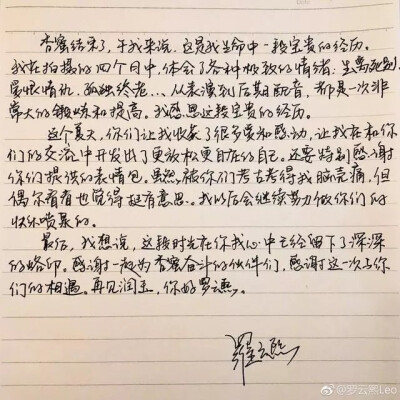 香蜜结束了，于我来说，这是我生命中一段宝贵的经历。
我在拍摄的四个月中，体会了各种极致的情绪：生离死别、
爱恨情仇、孤独终老…，从表演到后期配音，都是一次非
常大的锻炼和提高。我感恩这段宝贵的经历。
这个夏天，你们让我收获了很多爱和感动，让我在和你
们的交流中开发出了更放松更自在的自己。还要特别感谢
你们提供的表情包，虽然被你们考古考得我脑壳痛，但
偶尔看看也觉得挺有意思。我以后会继续努力做你们的
快乐喷泉的。
最后，我想说，这段时光在你我心中已经留下了深深
的烙印。感谢一起为香蜜奋斗的伙伴们，感谢这一次与你
们的相遇。再见润玉，你好罗云熙。
羅云熙
@罗云熙Leo